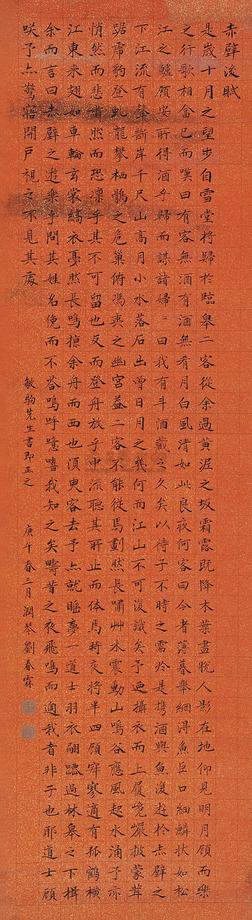 赤壁後賦
是歲十月之望步自雪堂將歸於臨皋二客從余過黃泥之坂霜露既降木葉盡脫人影在地仰見明月顧而樂
之行歌相答已而嘆曰有客無酒有酒無肴月白風清如此良夜何客曰今者薄暮舉網得魚巨口細鱗狀如松
江之鱸顧安所得酒乎歸而謀諸婦〻曰我有斗酒藏之久矣以待子不時之需於是攜酒與魚復遊於赤壁之
下江流有聲斷岸千尺山高月小水落石出曾日月之幾何而江山不可復識矣予迺攝衣而上履巉巖披蒙茸
踞虎豹登虬龍攀栖鶻之危巢俯馮夷之幽宮蓋二客不能從焉劃然長嘯艸木震動山鳴谷應風起水涌予亦
悄然而悲肅然而恐凜乎其不可留也反而登舟放乎中流聽其所止而休焉時夜將半四顧寂寥適有孤鶴橫
江東來翅如車輪玄裳縞衣戛然長鳴掠余舟而西也須臾客去予亦就睡夢一道士羽衣翩躚過林皋之下揖
余而言曰赤壁之遊樂乎問其姓名俛而不答嗚呼噫嘻我知之矣疇昔之夜飛鳴而過我者非子也耶道士顧
咲予亦驚寤開戶視之不見其處
敏駒先生書即正之 庚午春三月潤琴劉春霖